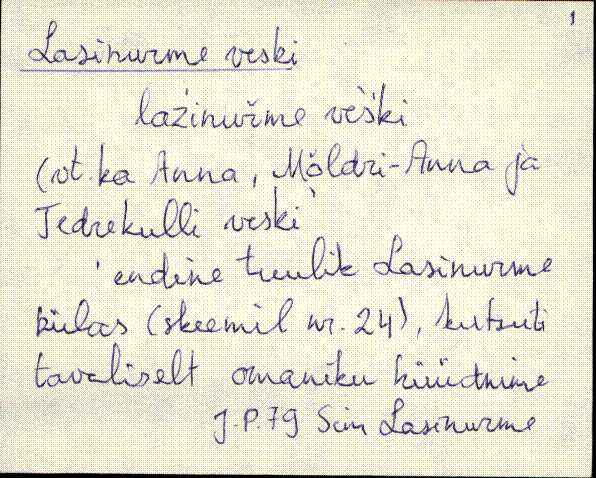 1
Lasinurme veski
laźinuřme vèš́ki
(vt. ka Anna, Möldri-Anna ja
Tedrekulli veski)
'endine tuulik Lasinurme
külas (skeemil nr. 24), kutsuti
tavaliselt omaniku hüüdnime
J.P.79 Sim Lasinurme